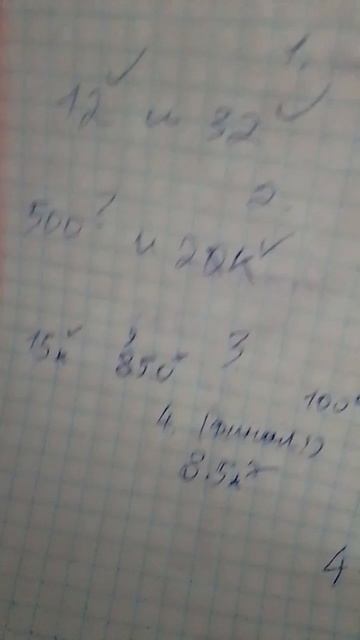 1.
12 и 32
2.
500 и 20к
15к 850 3
100
4. (финал)
8.5к
4